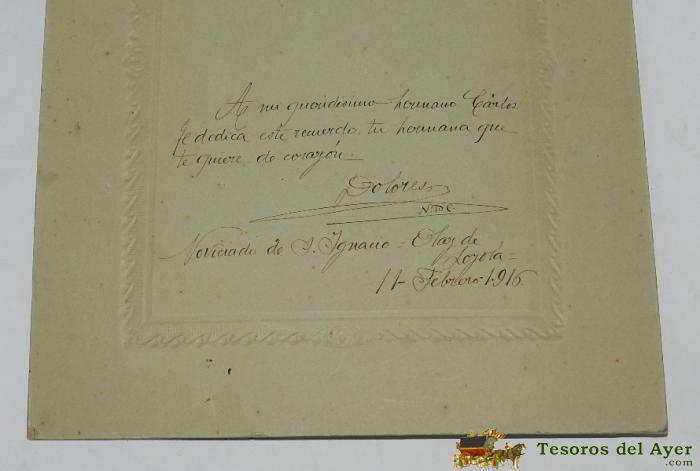 A mi queridisimo hermano Cárlos.
te dedica este recuerdo, tu hermana que
te quiere de corazón.
Dolores
Noviciado de S. Ignacio = Olaz de
Loyola =
11- Febrero-1.916
Tesoros del Ayer
.com